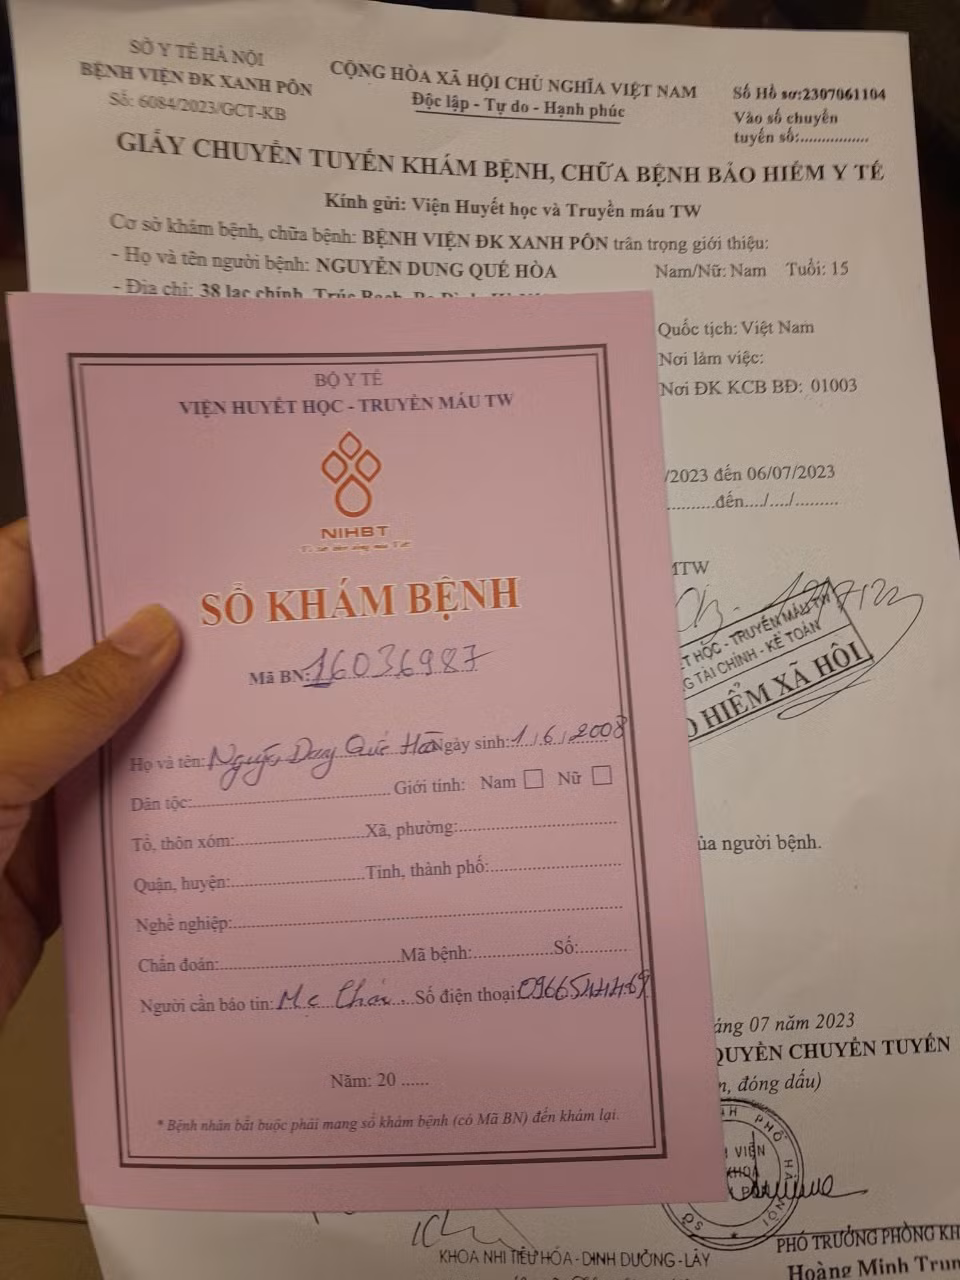 SỞ Y TẾ HÀ NỘI
BỆNH VIỆN ĐK XANH PÔN
Số: 6084/2023/GCT-KB
CỘNG HÒA XÃ HỘI CHỦ NGHĨA VIỆT NAM
Độc lập - Tự do - Hạnh phúc
Số Hồ sơ:2307061104
Vào sổ chuyển
tuyến số:................
GIẤY CHUYỂN TUYẾN KHÁM BỆNH, CHỮA BỆNH BẢO HIỂM Y TẾ
Kính gửi: Viện Huyết học và Truyền máu TW
Cơ sở khám bệnh, chữa bệnh: BỆNH VIỆN ĐK XANH PÔN trân trọng giới thiệu:
- Họ và tên người bệnh: NGUYỄN DUNG QUÉ HÒA Nam/Nữ: Nam Tuổi: 15
- Địa chỉ: 38 lạc chính, Trúc Bạch,
Quốc tịch: Việt Nam
Nơi làm việc:
Nơi ĐK KCB BĐ: 01003
/2023 đến 06/07/2023
.........đến..../..../.........
MTW
HỌC - TRUYỀN MÁU TW
G TÀI CHÍNH - KẾ TOÁN
O HIỂM XÃ HỘI
của người bệnh.
áng 07 năm 2023
QUYỀN CHUYỂN TUYẾN
n, đóng dấu)
PHÓ TRƯỞNG PHÒNG KH
Hoàng Minh Trun
KHOA NHI TIÊU HÓA - DINH DƯỠNG - LÂY
BỘ Y TẾ
VIỆN HUYẾT HỌC - TRUYỀN MÁU TW
NIHBT
SỔ KHÁM BỆNH
Mã BN: 16036987
Họ và tên: Nguyễn Duy Quốc Hoà Ngày sinh: 1/6/2008
Dân tộc: Giới tính: Nam Nữ
Tổ, thôn xóm: Xã, phường:
Quận, huyện: Tỉnh, thành phố:
Nghề nghiệp:
Chẩn đoán: Mã bệnh: Số:
Người cần báo tin: Số điện thoại:
Năm: 20 ......
* Bệnh nhân bắt buộc phải mang sổ khám bệnh (có Mã BN) đến khám lại.